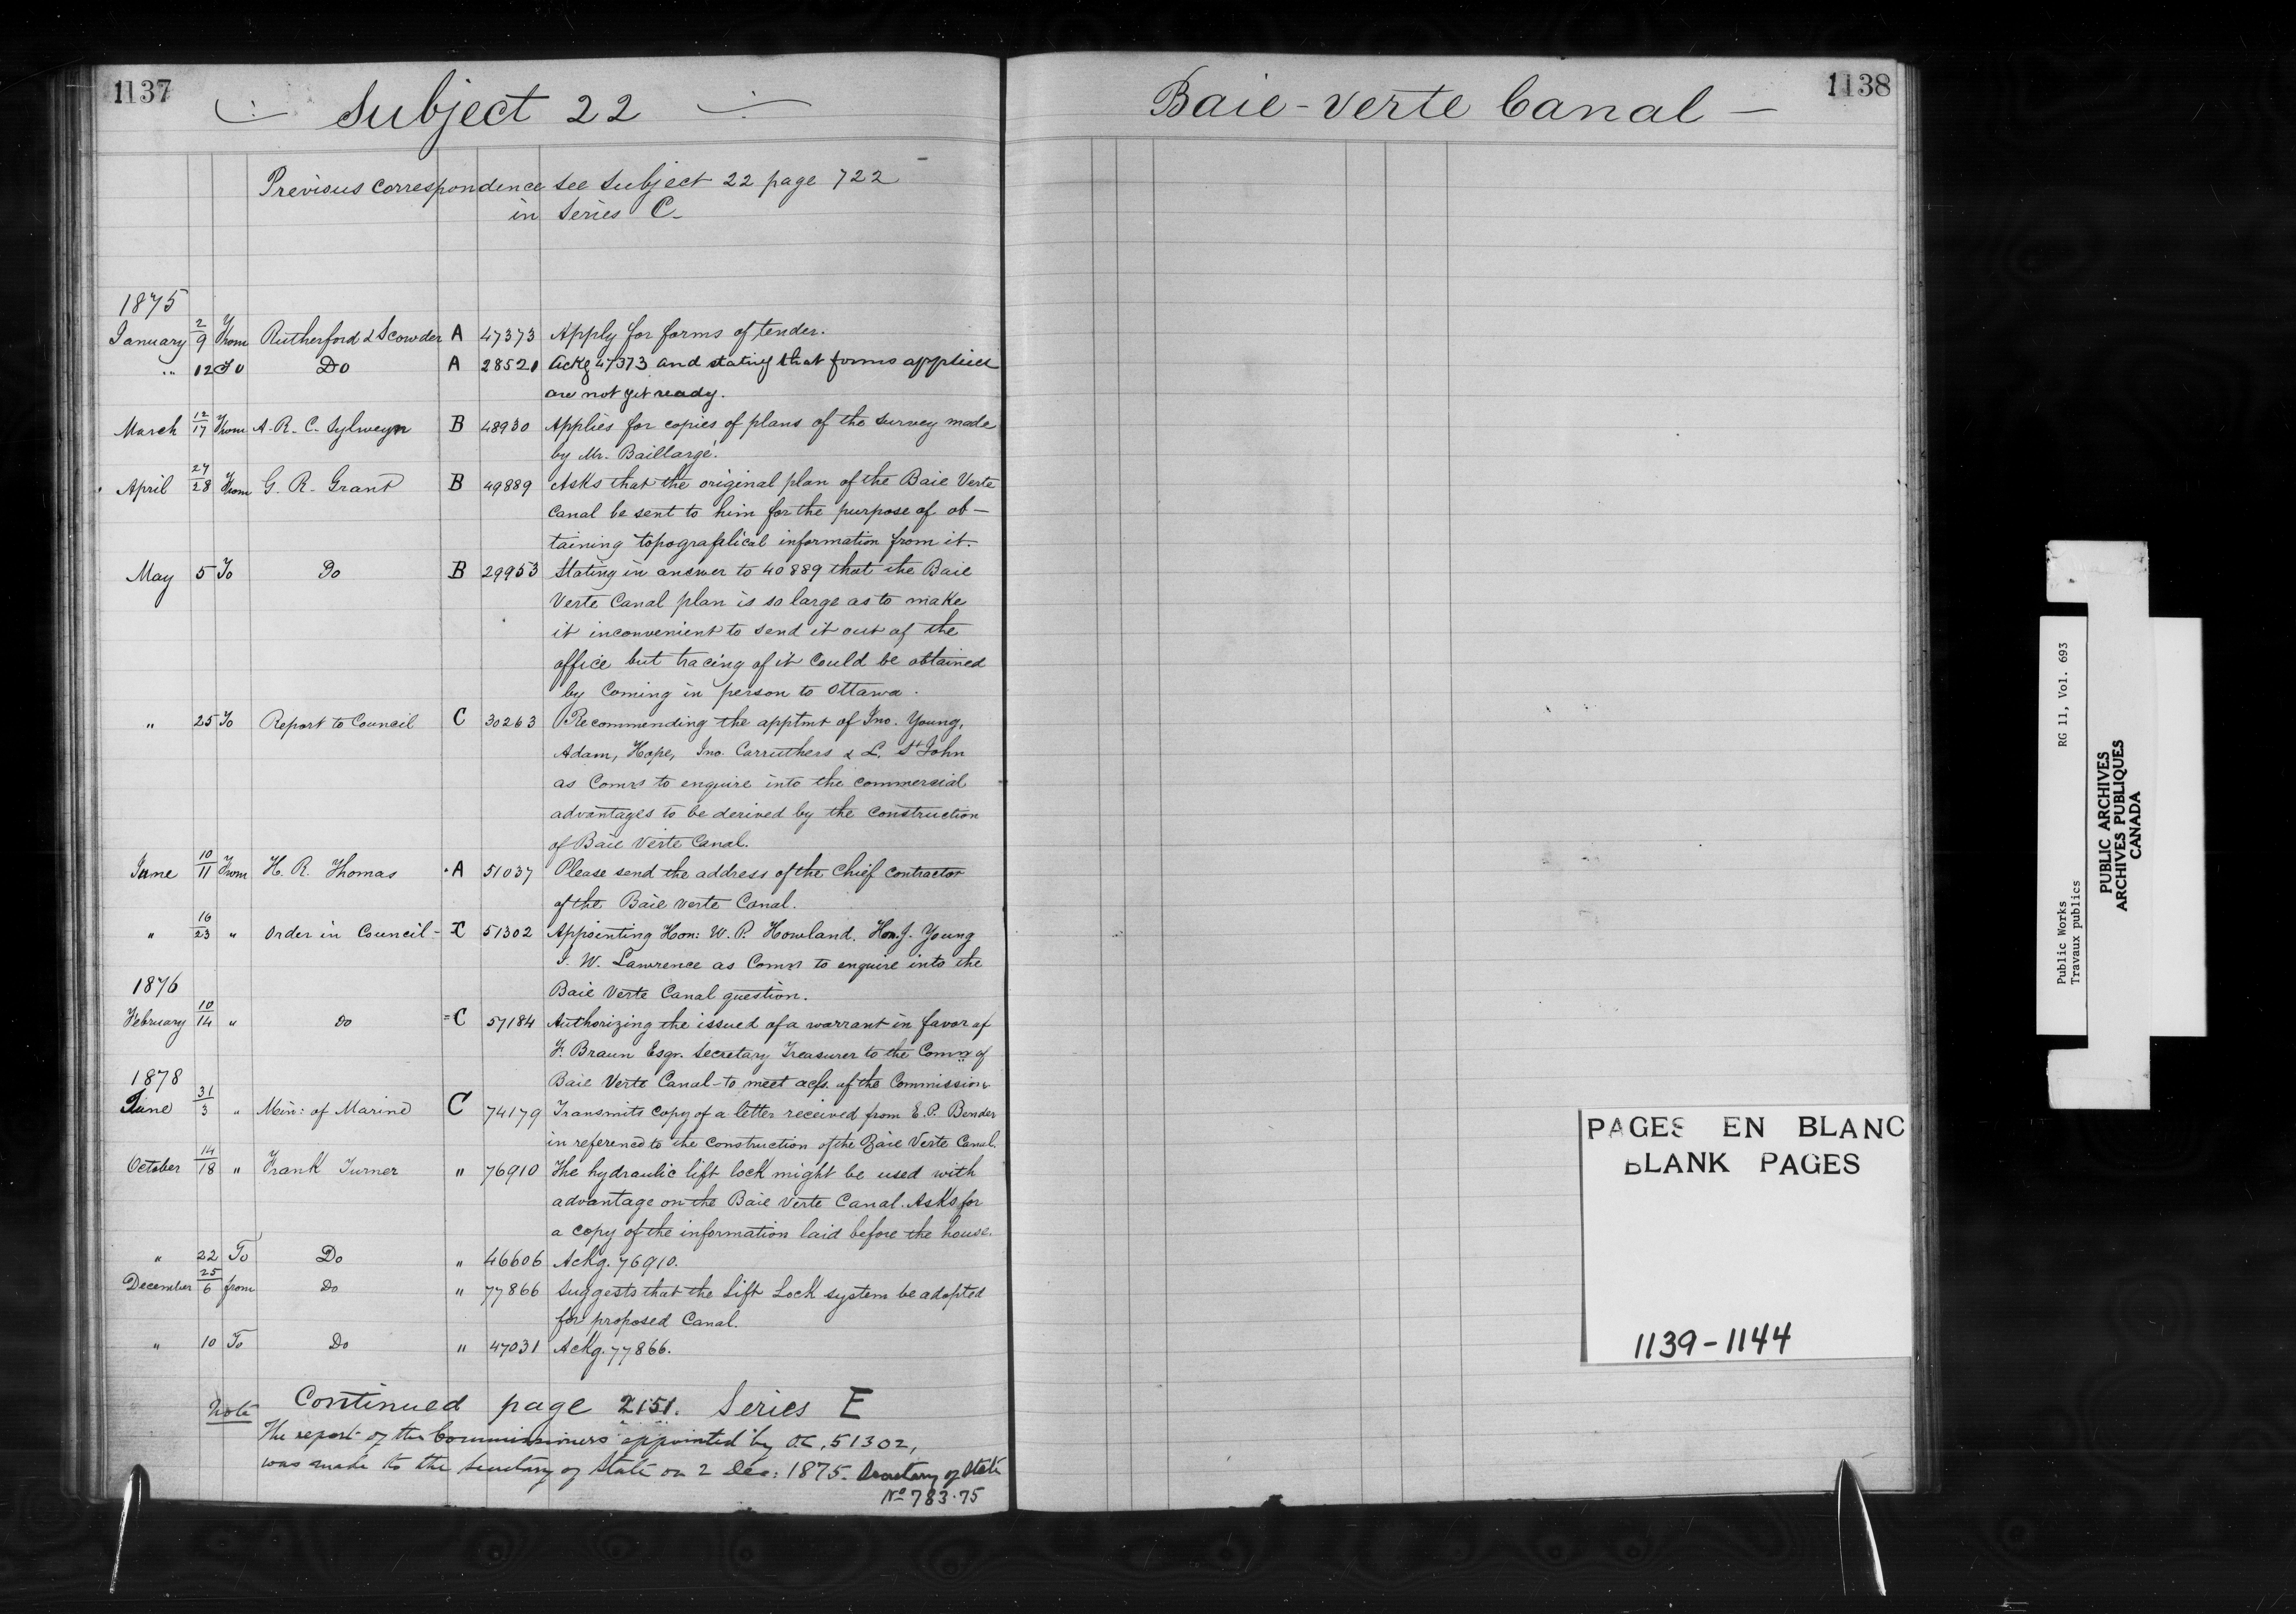 1137
Subject 22
Previous correspondence see Subject 22 page 722
in Series C.
1875
January 2/9 From Rutherford & Scowder A 47373 Apply for forms of tender.
" 12 To Do A 28521 Ackg 47373 and stating that forms applied
are not yet ready.
March 12/17 From A. R. C. Sylweyn B 48930 Applies for copies of plans of the survey made
by Mr. Baillargé.
April 24/28 From G. R. Grant B 49889 Asks that the original plan of the Baie Verte
Canal be sent to him for the purpose of ob-
taining topografical information from it.
May 5 To Do B 29953 Stating in answer to 40889 that the Baie
Verte Canal plan is so large as to make
it inconvenient to send it out of the
office but tracing of it could be obtained
by Coming in person to Ottawa.
" 25 To Report to Council C 30263 Recommending the apptmt of Jno. Young,
Adam, Hope, Jno. Carruthers & L. St John
as Comrs to enquire into the commercial
advantages to be derived by the construction
of Baie Verte Canal.
June 10/11 From H. R. Thomas A 51037 Please send the address of the Chief contractor
of the Baie Verte Canal.
" 16/23 " Order in Council - C 51302 Appointing Hon: W. P. Howland. Hon J. Young
J. W. Lawrence as Comrs to enquire into the
Baie Verte Canal question.
1876
February 10/14 " Do C 57184 Authorizing the issued of a warrant in favor of
F. Braun Esqr. Secretary Treasurer to the Comrs of
Baie Verte Canal - to meet accts. of the Commission.
1878
June 31/3 " Min: of Marine C 74179 Transmits copy of a letter received from E. P. Bender
in reference to the construction of the Baie Verte Canal.
October 14/18 " Frank Turner " 76910 The hydraulic lift lock might be used with
advantage on the Baie Verte Canal. Asks for
a copy of the information laid before the house.
" 22 To Do " 46606 Ackg. 76910.
December 25/6 from Do " 77866 Suggests that the Lift Lock system be adopted
for proposed Canal.
" 10 To Do " 47031 Ackg. 77866.
Continued page 2151. Series E
Note
The report of the Commissioners appointed by OC, 51302,
was made to the Secretary of State on 2 Dec: 1875. Secretary of State
No 783.75
1138
Baie-Verte Canal -
PAGES EN BLANC
BLANK PAGES
1139-1144
Public Works RG 11, Vol. 693
Travaux publics
PUBLIC ARCHIVES
ARCHIVES PUBLIQUES
CANADA